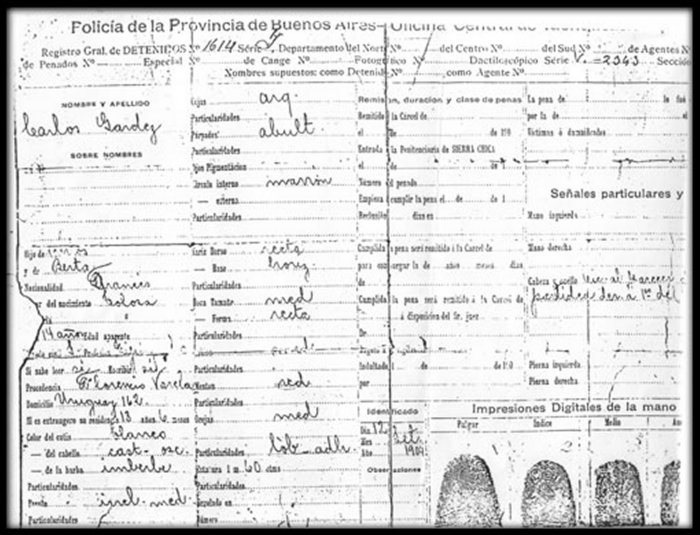 Policía de la Provincia de Buenos Aires—Oficina Central de
Registro Gral. de DETENIDOS Nº 1614 Série Departamento del Norte Nº del Centro Nº del Sud Nº de Agentes N
de Penados Nº Especial Nº de Cange Nº Fotográfico Nº Dactiloscópico Série V.—2343 Sección
Nombres supuestos: como Detenido Nº como Agente Nº
NOMBRE Y APELLIDO
Carlos Gardez
SOBRE NOMBRES
Hijo de
y de Berta
Nacionalidad Francés
del nacimiento
14 años Edad aparente
Si sabe leer si Escribir si
Procedencia Florencio Varela
Domicilio Uruguay 162
Si es extrangero su residencia 13 años 6 meses
Color del cutis blanco
— del cabello cast. osc.
— de la barba imberbe
Particularidades
Frente incl. med.
Particularidades
Cejas arq
Particularidades
Párpados abult.
Particularidades
Ojos Pigmentación
Círculo interno marrón
— externo
Particularidades
Nariz Dorso recta
— Base horiz
Particularidades
Boca Tamaño med
— Forma recta
Particularidades
Particularidades
Menton red
Particularidades
Orejas med
Particularidades lób. adh.
Estatura 1 m. 60 ctms
Particularidades
Número
Remisión, duración y clase de penas
Remitido a la Cárcel de
el de de 190
Entrada a la Penitenciaría de SIERRA CHICA
el de de 1
Número del penado
Empieza a cumplir la pena el de de 1
Reclusión días en
Cumplida la pena será remitido á la Carcel de
para descargar la de años meses dias
Cumplida la pena será remitido á la Carcel de
á disposición del Sr. juez
De
Indultado el de de 190
por
Identificado
Día 12
Mes
Año 1904
Observaciones
La pena de le fué
por la de el
Víctimas ó damnificados
Señales particulares y
Mano izquierda
Mano derecha
Cabeza y cuello
Pierna izquierda
Pierna derecha
Impresiones Digitales de la mano
Pulgar Indice Medio